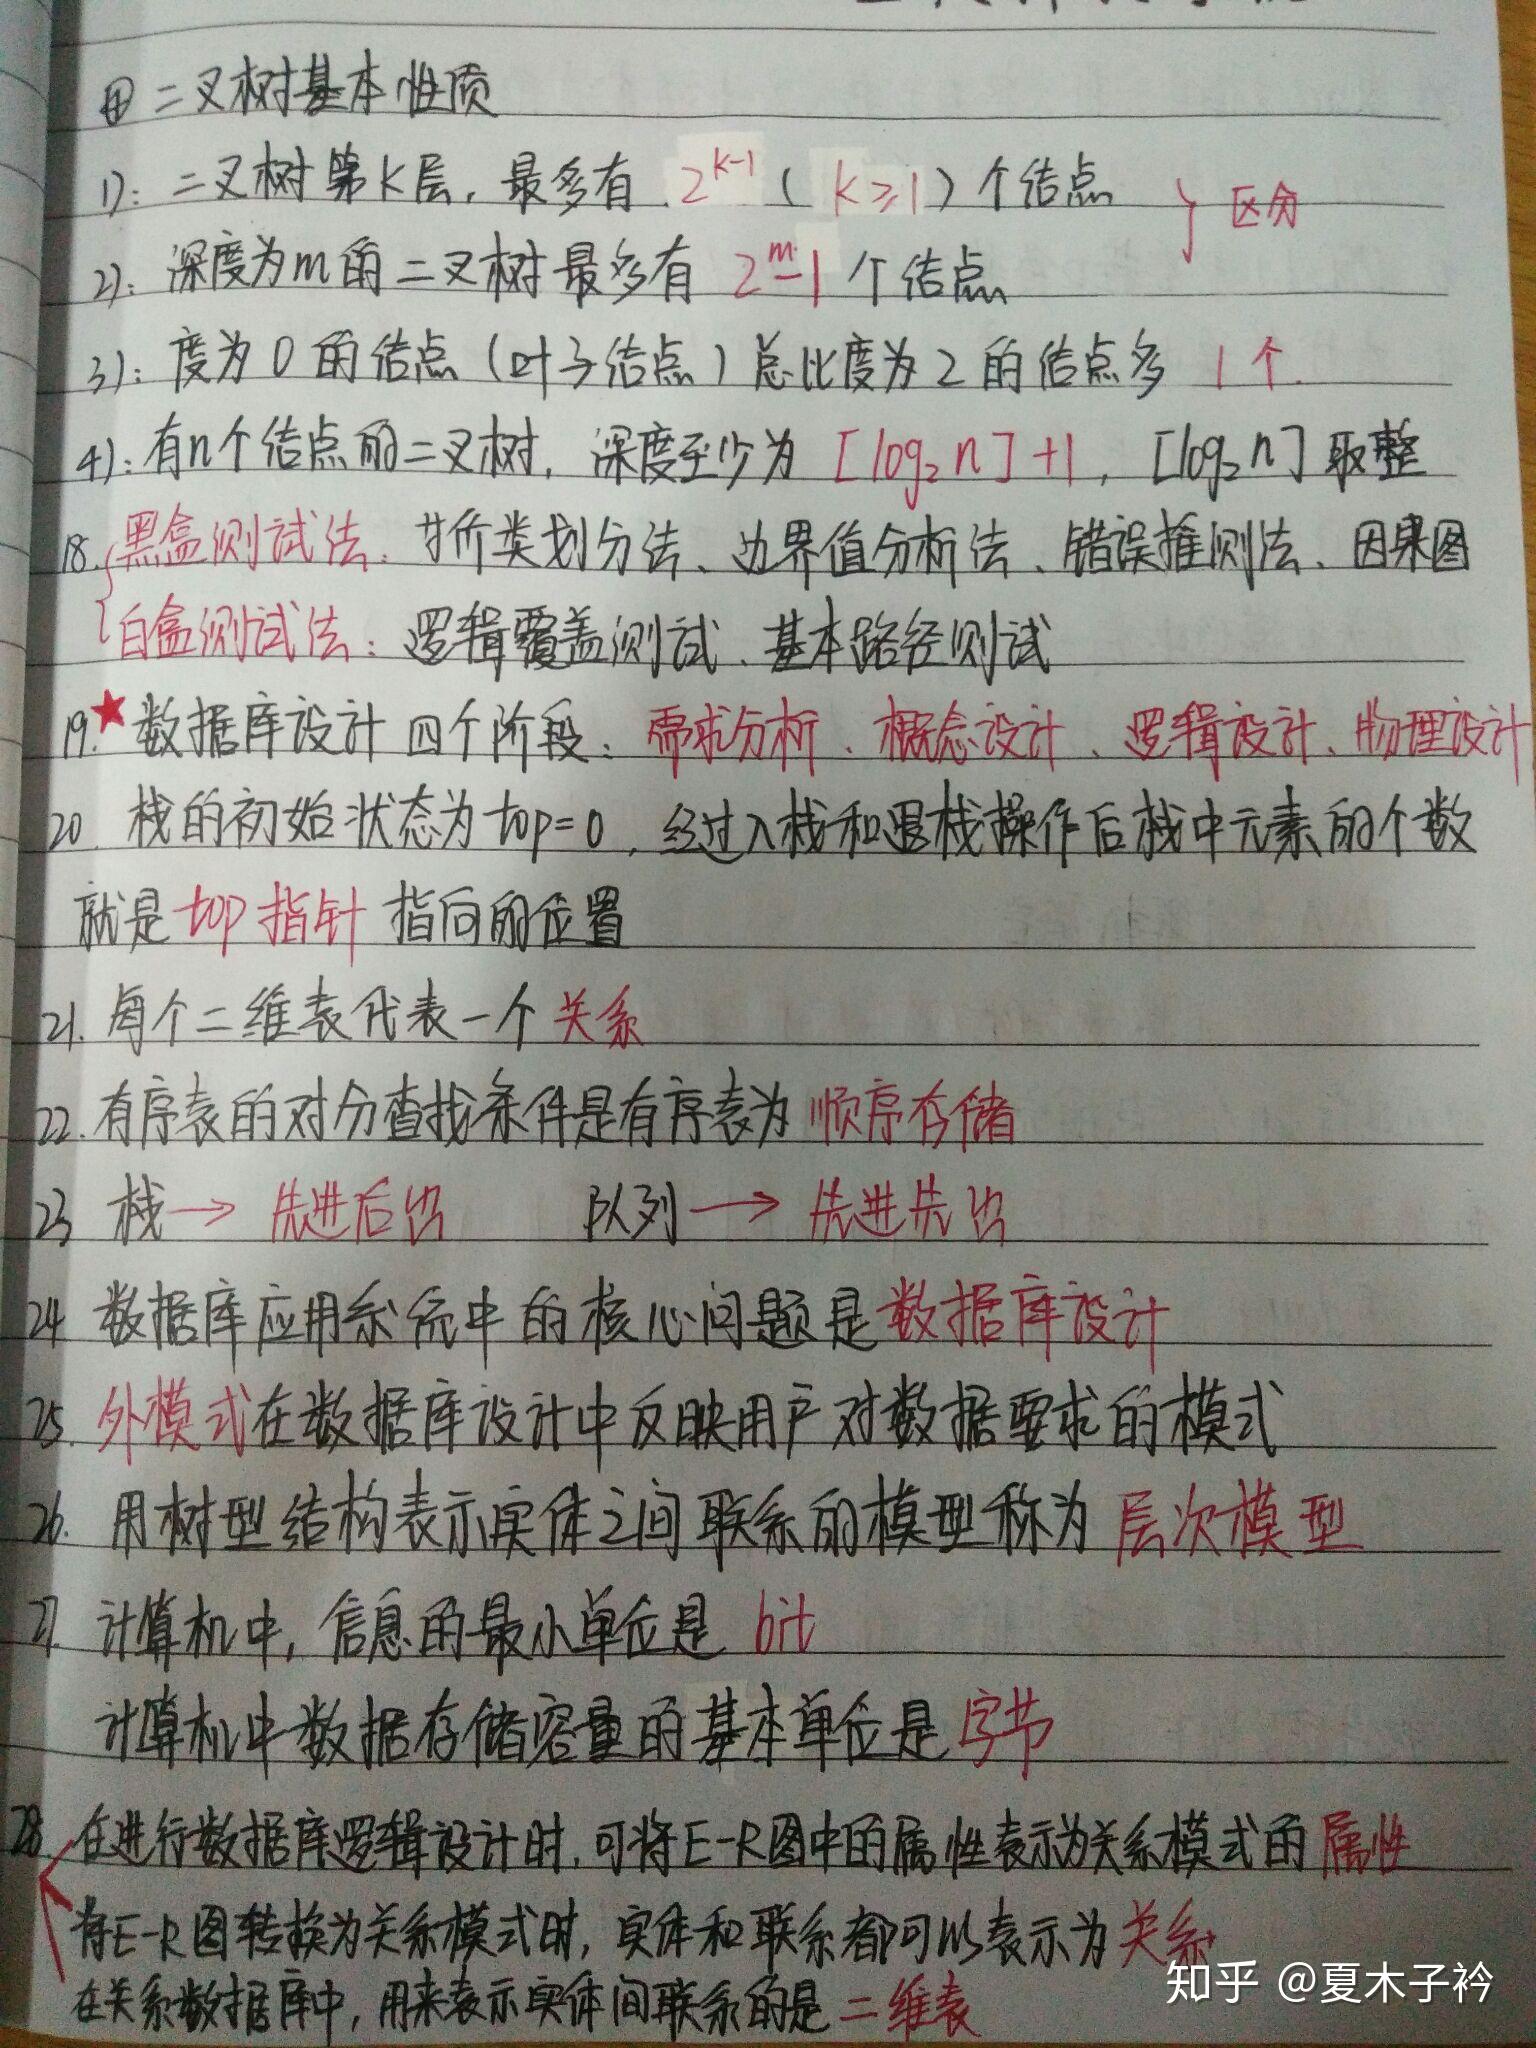 ④ 二叉树基本性质
1): 二叉树第K层，最多有 2^(k-1) ( k≥1 ) 个结点 } 区分
2): 深度为m的二叉树最多有 2^m-1 个结点
3): 度为0的结点（叶子结点）总比度为2的结点多 1个.
4): 有n个结点的二叉树，深度至少为 [log₂n]+1，[log₂n]取整
18. 黑盒测试法：等价类划分法、边界值分析法、错误推测法、因果图
白盒测试法：逻辑覆盖测试、基本路径测试
19.★数据库设计四个阶段：需求分析、概念设计、逻辑设计、物理设计
20. 栈的初始状态为top=0，经过入栈和退栈操作后栈中元素的个数
就是top指针指向的位置
21. 每个二维表代表一个关系
22. 有序表的对分查找条件是有序表为顺序存储
23. 栈→先进后出 队列→先进先出
24. 数据库应用系统中的核心问题是数据库设计
25. 外模式在数据库设计中反映用户对数据要求的模式
26. 用树型结构表示实体之间联系的模型称为层次模型
27. 计算机中，信息的最小单位是 bit
计算机中数据存储容量的基本单位是字节
28. 在进行数据库逻辑设计时，可将E-R图中的属性表示为关系模式的属性
将E-R图转换为关系模式时，实体和联系都可以表示为关系
在关系数据库中，用来表示实体间联系的是二维表
知乎 @夏木子衿